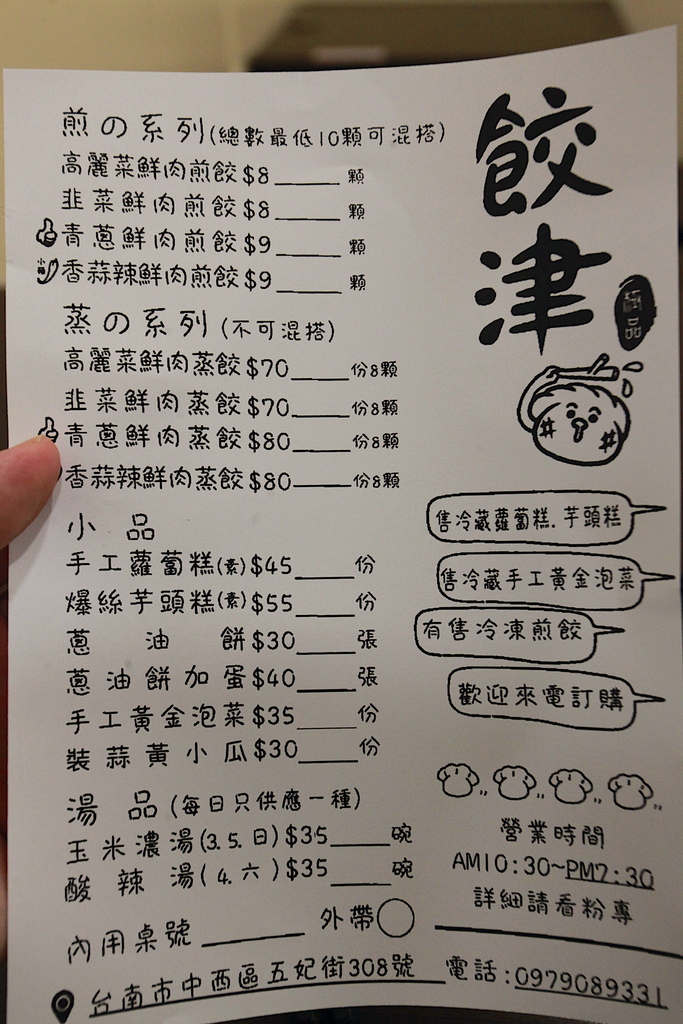 煎の系列(總數最低10顆可混搭)
高麗菜鮮肉煎餃$8______顆
韭菜鮮肉煎餃$8______顆
青蔥鮮肉煎餃$9______顆
小辣
香蒜辣鮮肉煎餃$9______顆
蒸の系列(不可混搭)
高麗菜鮮肉蒸餃$70______份8顆
韭菜鮮肉蒸餃$70______份8顆
青蔥鮮肉蒸餃$80______份8顆
香蒜辣鮮肉蒸餃$80______份8顆
小品
手工蘿蔔糕(素)$45______份
爆絲芋頭糕(素)$55______份
蔥油餅$30______張
蔥油餅加蛋$40______張
手工黃金泡菜$35______份
裝蒜黃小瓜$30______份
湯品(每日只供應一種)
玉米濃湯(3.5.日)$35______碗
酸辣湯(4.六)$35______碗
內用桌號______ 外帶○
餃津
售冷藏蘿蔔糕.芋頭糕
售冷藏手工黃金泡菜
有售冷凍煎餃
歡迎來電訂購
營業時間
AM10:30~PM7:30
詳細請看粉專
台南市中西區五妃街308號 電話:0979089331